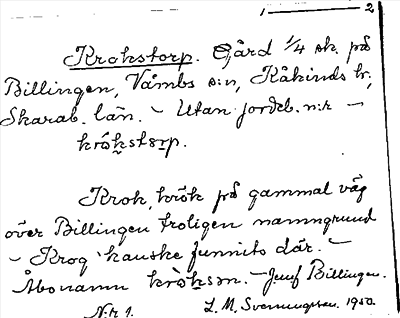 1 — 2
Krokstorp. Gård 1/4 sk. på
Billingen, Våmbs s:n, Kåkinds hr,
Skarab. län. – Utan jordeb. n:r –
krókstårp.
Krok, krök på gammal väg
över Billingen troligen namngrund
– Krog kanske funnits där. –
Åbonamn kròksən. – Jmf Billingen.
N:r 1.
L. M. Svenungsson. 1950.